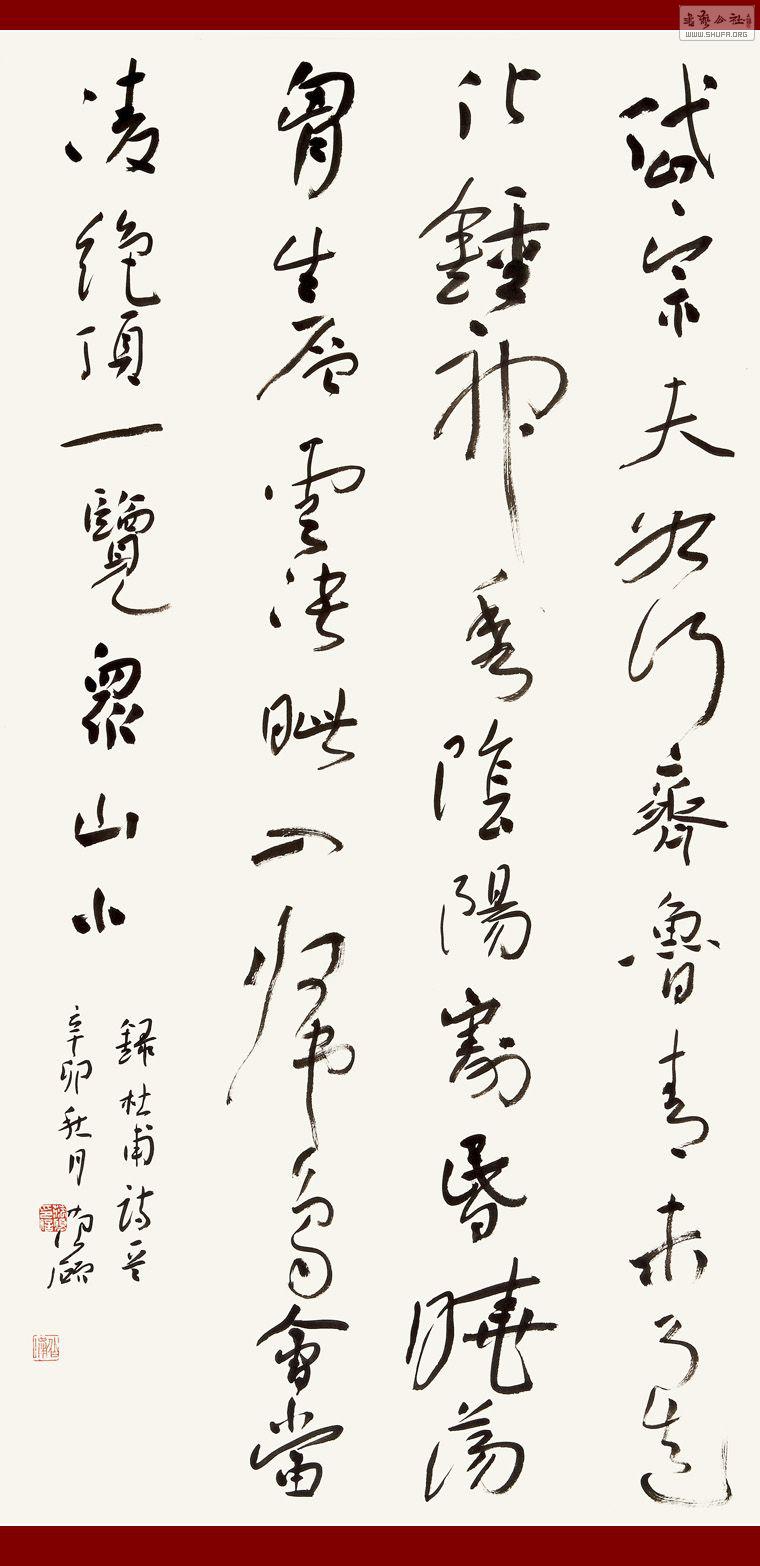 岱宗夫如何齊魯青未了造
化鍾神秀陰陽割昏曉蕩
胷生層雲決眦入歸鳥會當
凌絕頂一覽眾山小
錄杜甫詩
辛卯秋月
書藝公社
WWW.SHUFA.ORG